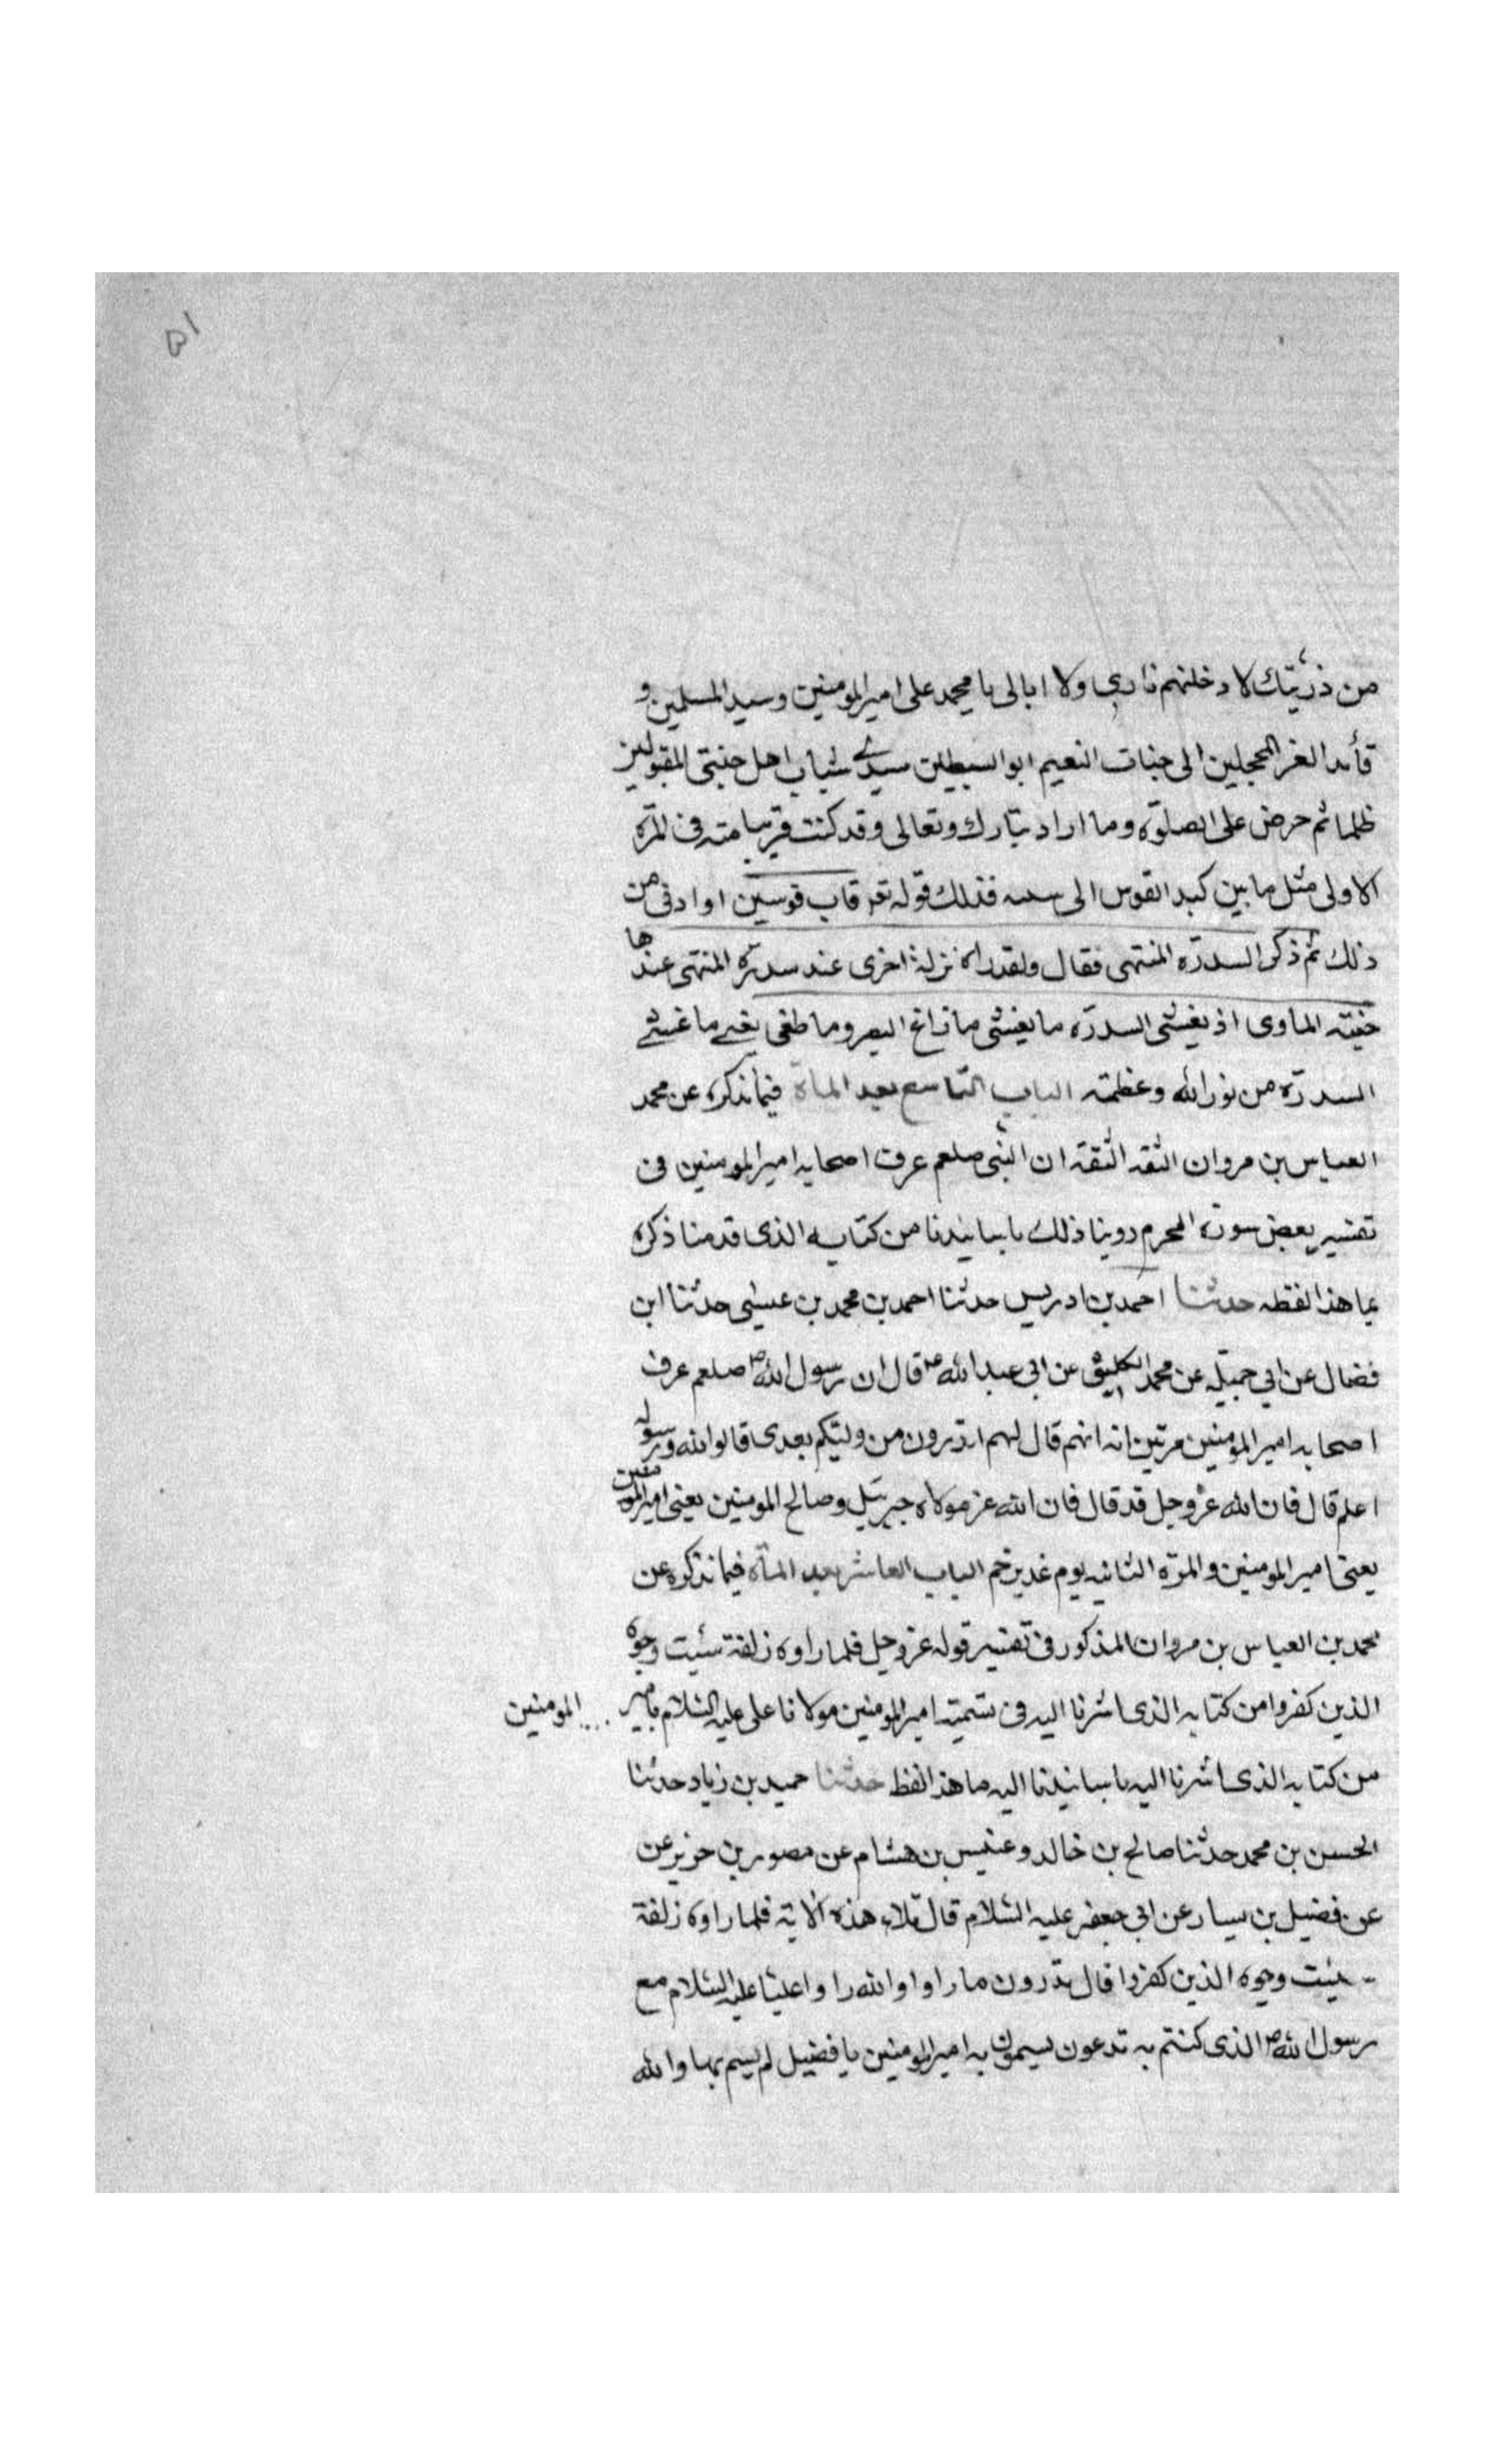 ۵۱
من ذریتك لادخلنهم ناری ولا ابالی یا محمد علی امیر المومنین وسید المسلمین و
قائد الغر المحجلین الی جنات النعیم ابو السبطین سیدی شباب اهل جنتی المقتولین
ظلما ثم حرض علی الصلوة وما اراد تبارك وتعالی وقد كنت قریبا منه فی المرة
الاولی مثل ما بین كبد القوس الی سیته فذلك قوله تعر قاب قوسین او ادنی من
ذلك ثم ذكر السدرة المنتهی فقال ولقد راه نزلة اخری عند سدرة المنتهی عندها
جنته الماوی اذ یغشی السدرة ما یغشی ما زاغ البصر وما طغی یغیے ما غشے
السدرة من نور الله وعظمته الباب التاسع بعد الماة فیما نذكره عن محمد
العباس بن مروان الثقه الثقة ان النبی صلعم عرف اصحابه امیر المومنین فی
تفسیر بعض سورة المحرم روینا ذلك باسانیدنا من كتابه الذی قدمنا ذكره
بما هذا لفظه حدثنا احمد بن ادریس حدثنا احمد بن محمد بن عیسی حدثنا ابن
فضال عن ابی جمیله عن محمد الكلیثی عن ابی عبد الله ع قال ان رسول الله ص صلعم عرف
اصحابه امیر المؤمنین مرتین انه انهم قال لهم اتدرون من ولیكم بعدی قالوا الله ورسوله
اعلم قال فان الله عز وجل قد قال فان الله عز مولاه جبرئیل وصالح المومنین یعنی امیر المومنین
یعنی امیر المومنین والمرة الثانیه یوم غدیر خم الباب العاشر بعد الماة فیما نذكره عن
محمد بن العباس بن مروان المذكور فی تفسیر قوله عز وجل فلما راوه زلفة سئیت وجوه
الذین كفروا من كتابه الذی اشرنا الیه فی تسمیته امیر المومنین مولانا علی علیه السلام بامیر ... المومنین
من كتابه الذی اشرنا الیه باسانیدنا الیه ما هذا لفظ حدثنا حمید بن زیاد حدثنا
الحسن بن محمد حدثنا صالح بن خالد وعنبس بن هشام عن مصور بن حزیر عن
عن فضیل بن یسار عن ابی جعفر علیه السلام قال تلاء هذه الایة فلما راوه زلفة
سیئت وجوه الذین كفروا قال تدرون ما راوا والله راوا علیا علیه السلام مع
رسول الله ص الذی كنتم به تدعون یسمون به امیر المومنین یا فضیل لم یسم بها والله